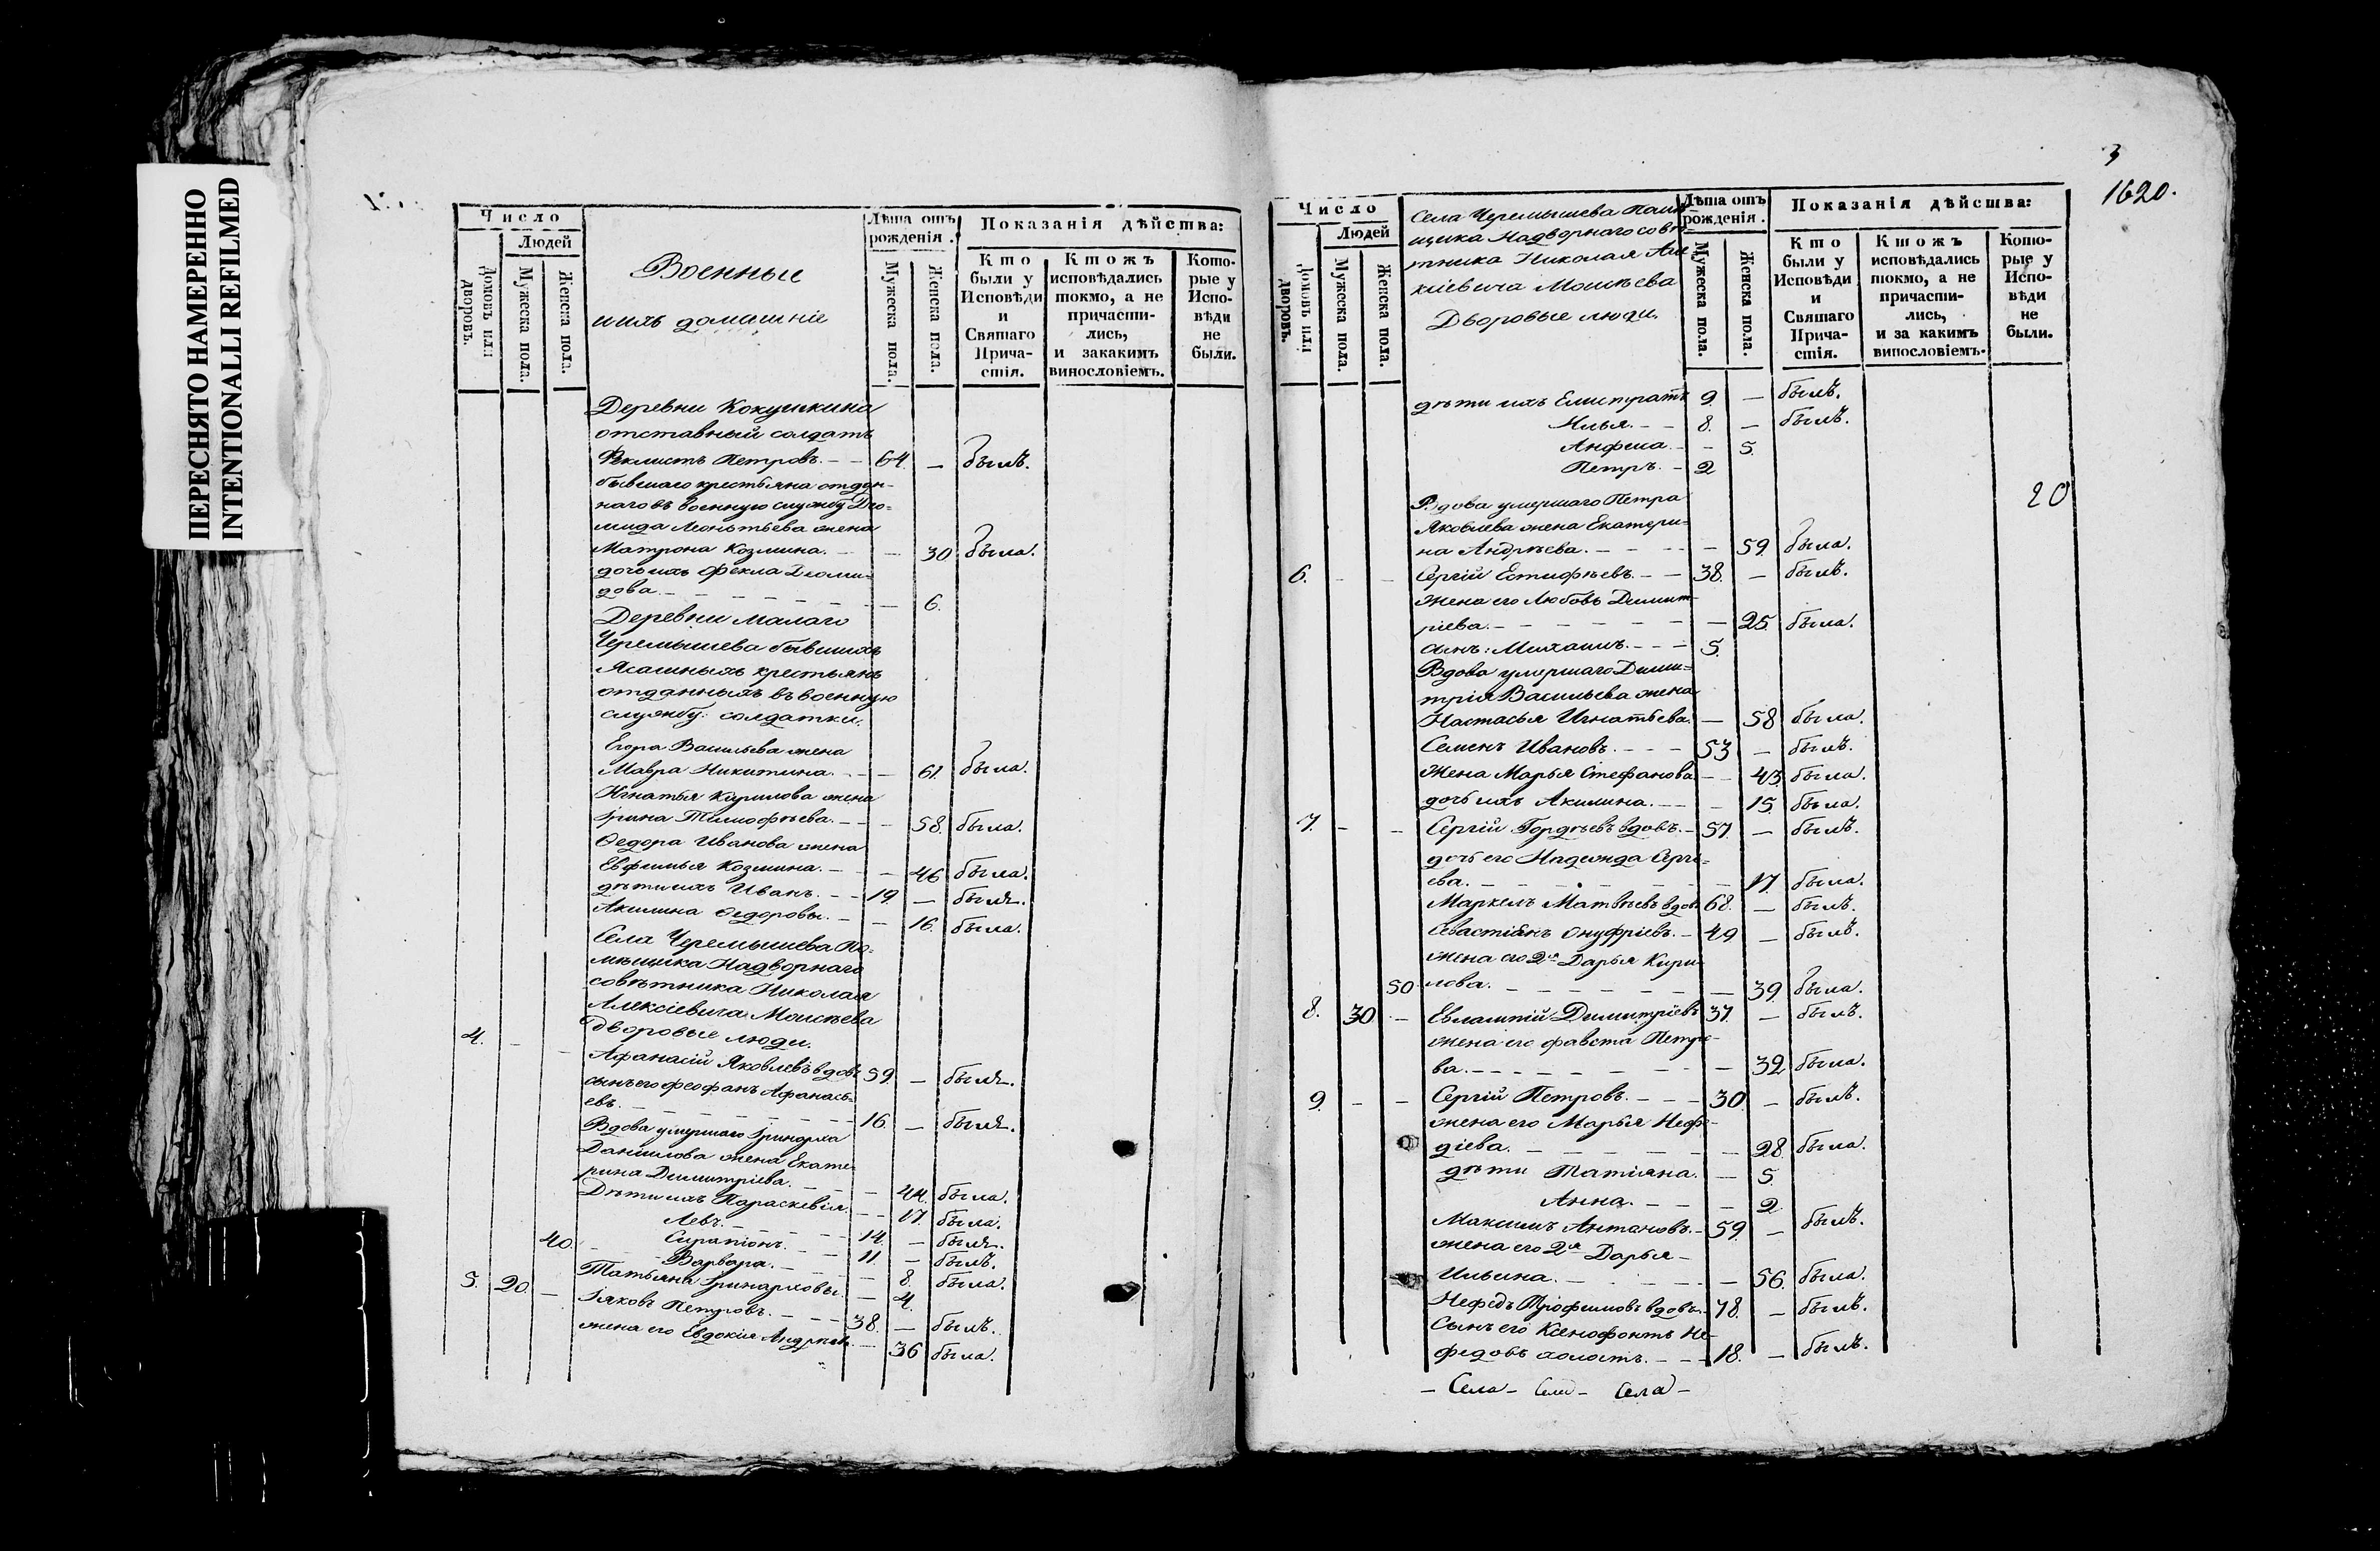 ПЕРЕСНЯТО НАМЕРЕННО
INTENTIONALLI REFILMED
Число
Людей
Домовъ или дворовъ.
Мужеска пола.
Женска пола.
Военные
и ихъ домашніе
Лѣта отъ рожденія.
Мужеска пола.
Женска пола.
Показанія дѣйства:
Кто были у Исповѣди и Святаго Причастія.
Ктожъ исповѣдались токмо, а не причастились, и закакимъ винословіемъ.
Которые у Исповѣди не были.
Деревни Кокушкина
отставный солдатъ
Феклистъ Петровъ. – – 64. – былъ.
бывшаго крестьяна отдан-
наго въ военную службу Дио-
мида Леонтьева жена
Матрона Козмина. – – 30. была.
дочь ихъ Фекла Диоми-
дова. – – 6.
Деревни Малаго
Черемышева бывшихъ
Ясашныхъ крестьянъ
отданныхъ въ военную
службу: солдатки.
Егора Васильева жена
Мавра Никитина. – – 61. была.
Игнатья Кирилова жена
Ирина Тимофѣева. – – 58. была.
Ѳедора Иванова жена
Евфимья Козмина. – – 46 была.
дѣти ихъ Иванъ. – – 19. – былъ.
Акилина Ѳедоровы. – – 16. была.
Села Черемышева По-
мѣщика Надворнаго
совѣтника Николая
Алексіевича Моисѣева
4. – – дворовые люди.
Афанасій Яковлевъ вдовъ 59. – былъ.
сынъ его Феофанъ Афанась-
евъ. – – 16. – былъ.
Вдова умершаго Іринарха
Данилова жена Екате-
рина Димитріева. – – 44. была.
Дѣти ихъ Параскевія. – – 17. была.
Левъ. – – 14. – былъ.
40. Сирапіонъ. – – 11. – былъ.
Варвара. – – 8. была.
Татьяна Іринарховы. – 4.
5. 20. – Іяковъ Петровъ. – – 38. – былъ.
жена его Евдокія Андрѣев. – 36 была.
3
1620.
Число
Людей
Домовъ или дворовъ.
Мужеска пола.
Женска пола.
Села Черемышева Помѣ-
щика Надворнаго совѣ-
тника Николая Але-
ксіевича Моисѣева
Дворовые люди.
Лѣта отъ рожденія.
Мужеска пола.
Женска пола.
Показанія дѣйства:
Кто были у Исповѣди и Святаго Причастія.
Ктожъ исповѣдались токмо, а не причастились, и за какимъ винословіемъ.
Которые у Исповѣди не были.
дѣти ихъ Елистратъ 9. – былъ.
Илья. – – 8. – былъ.
Анфиса. – – 5.
Петръ. – 2
20
Вдова умершаго Петра
Яковлева жена Екатери-
на Андрѣева. – – 59. была.
6. – – Сергій Естифѣевъ. – – 38. – былъ.
жена его Любовь Димит-
ріева. – – 25. была.
сынъ: Михаилъ. – – – 5.
Вдова умершаго Дими-
трія Васильева жена
Настасья Игнатьева. – 58 была.
Семенъ Ивановъ. – – – 53 – былъ.
Жена Марья Стефанова – – 43. была.
дочь ихъ Акилина. – – – 15. была.
7. – – Сергій Гордѣевъ вдовъ. – 57. – былъ.
дочь его Надежда Серге-
ева. – – 17. была.
Маркелъ Матвѣевъ вдовъ 68. – былъ.
Севастіянъ Онуфріевъ. – 49 – былъ.
жена его 2я Дарья Кири-
50. лова. – – 39. была.
8. 30. – Евлампій Димитріевъ 37. – былъ.
жена его Фавста Петро-
ва. – – 32. была.
9. – – Сергій Петровъ. – – – 30. – былъ.
жена его Марья Нефе-
діева. – – 28. была.
дѣти Татіяна. – 5.
Анна. – – 2
Максимъ Антоновъ. – 59. – былъ.
жена его 2я Дарья –
Ильина. – – 56. была.
Нефедъ Трофимовъ вдовъ. 78. – былъ.
Сынъ его Ксенофонтъ Не-
федовъ холостъ. – – – 18. – былъ.
– Села – Села – Села –